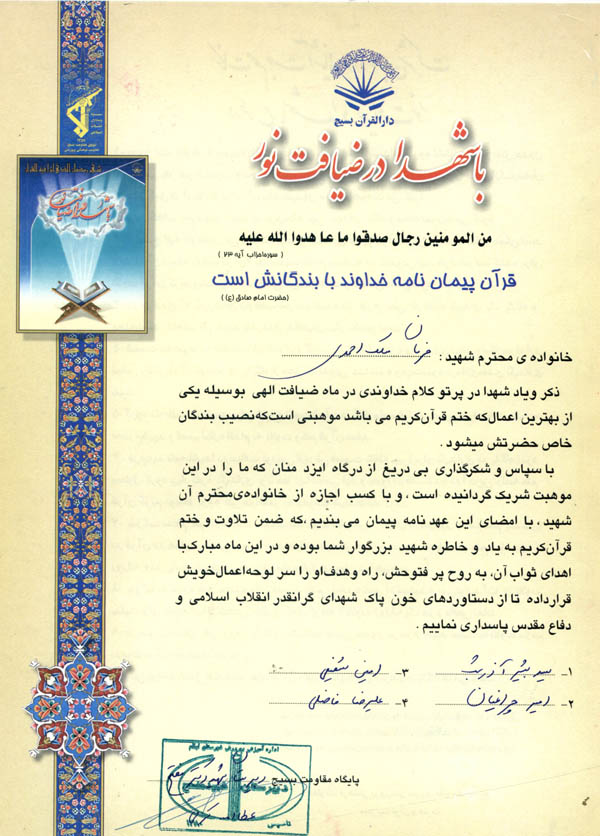 دارالقرآن بسیج
با شهدا در ضیافت نور
من المو منین رجال صدقوا ما عا هدوا الله علیه
( سوره احزاب آیه ۲۳ )
قرآن پیمان نامه خداوند با بندگانش است
(حضرت امام صادق (ع) )
خانواده ی محترم شهید :
ذکر ویاد شهدا در پرتو کلام خداوندی در ماه ضیافت الهی بوسیله یکی
از بهترین اعمال که ختم قرآن کریم می باشد موهبتی است که نصیب بندگان
خاص حضرتش میشود .
با سپاس و شکرگذاری بی دریغ از درگاه ایزد منان که ما را در این
موهبت شریک گردانیده است ، و با کسب اجازه از خانواده ی محترم آن
شهید ، با امضای این عهد نامه پیمان می بندیم ، که ضمن تلاوت و ختم
قرآن کریم به یاد و خاطره شهید بزرگوار شما بوده و در این ماه مبارک با
اهدای ثواب آن، به روح پر فتوحش، راه وهدف او را سر لوحه اعمال خویش
قرارداده تا از دستاوردهای خون پاک شهدای گرانقدر انقلاب اسلامی و
دفاع مقدس پاسداری نماییم .
۱-
۳- امین
۲- امیر چراغیان
۴- علیرضا فاضلی
اداره آموزش و پرورش
پایگاه مقاومت بسیج